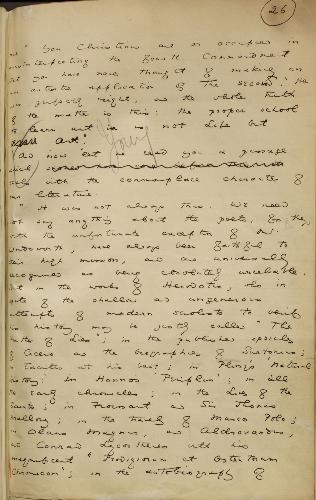 26
" You Christians are so occupied in
misinterpreting the Fourth Commandment
that you have never thought of making an
artistic application of the second." He
was perfectly right, and the whole truth
of the matter is this: the proper school
to learn art in is not Life but
Art.
And now let me read you a passage
which
deals with the commonplace character of
our literature:
" It was not always thus. We need
not say anything about the poets, for they,
with the unfortunate exception of Mr.
Wordsworth have always been faithful to
their high mission, and are universally
recognised as being absolutely unreliable.
But in the works of Herodotus, who in
spite of the shallow and ungenerous
attempts of modern sciolists to verify
his history may be justly called "The
Father of Lies"; in the published speeches
of Cicero and the biographies of Suetonius;
in Tacitus at his best; in Pliny's Natural
History; in Hanno's Periplus; in all
the early chronicles; in the Lives of the
Saints; in Froissart and Sir Thomas
Mallory; in the travels of Marco Polo;
in Olaus Magnus, and Aldrovandus,
and Conrad Lycosthenes with his
magnificent " Prodigiorum et Ostentorum
Chronicon"; in the autobiography of